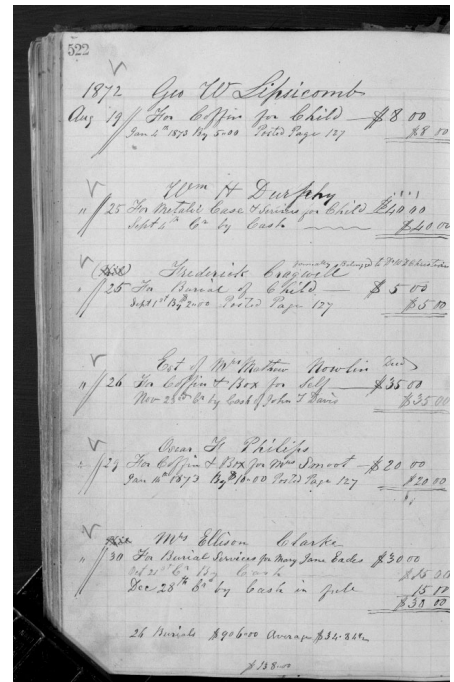 522
1872 Geo W Lipsicomb
Aug 19 For Coffin for Child $8 00
Jan 4th 1873 By 5.00 Posted Page 127 $8 00
Wm H Durphy
" 25 For Metalic Case & Servises for Child $40.00
Sept 4th Cr by Cash $40.00
Frederick Cragwill
" 25 For Burial of Child $5 00
Sept 1st By 2.00 Posted Page 127 $5 00
Est of Mrs Mathew Nowlin Decd
" 26 For Coffin & Box for Self $35 00
Nov 23rd Cr by Cash of John T Davis $35.00
Oscar H Philips
" 29 For Coffin & Box for Mrs Smoot $20 00
Jan 1873 By $10.00 Posted Page 127 $20 00
Mrs Ellison Clarke
" 30 For Burial Servises for Mary Jane Eades $30 00
Oct 21st Cr By Cash $15 00
Dec 28th Cr by Cash in full 15 00
$30 00
26 Burials $906.00 Average $34.84
$138.00